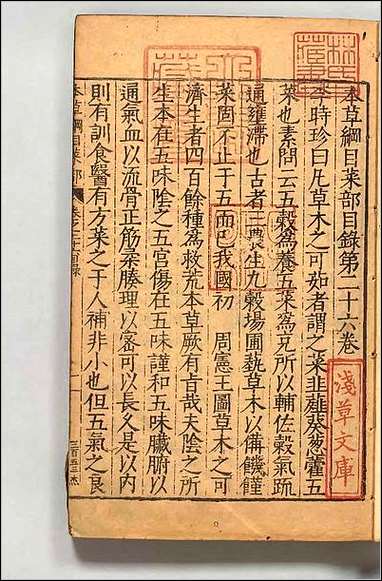 本草綱目菜部目録第二十六卷
李時珍曰凡草木之可茹者謂之菜韭薤葵葱藿五
菜也素問云五穀爲養五菜爲充所以輔佐穀氣疏
通壅滯也古者三農生九穀場圃蓺草木以備饑饉
菜固不止于五而已我國初 周憲王圖草木之可
濟生者四百餘種爲救荒本草厥有旨哉夫陰之所
生本在五味陰之五宮傷在五味謹和五味臟腑以
通氣血以流骨正筋柔腠理以密可以長久是以內
則有訓食醫有方菜之于人補非小也但五氣之良
本草綱目菜部
淺草文庫